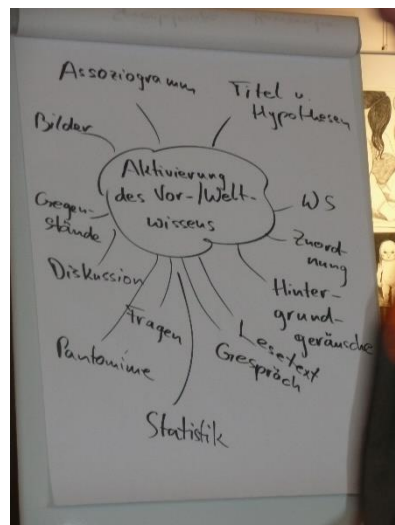 Assoziogramm
Titel u.
Hypothesen
Bilder
Aktivierung
des Vor-/Welt-
wissens
WS
Gegen-
stände
Zuord-
nung
Diskussion
Hinter-
grund-
geräusche
Fragen
Lesetext
Gespräch
Pantomime
Statistik